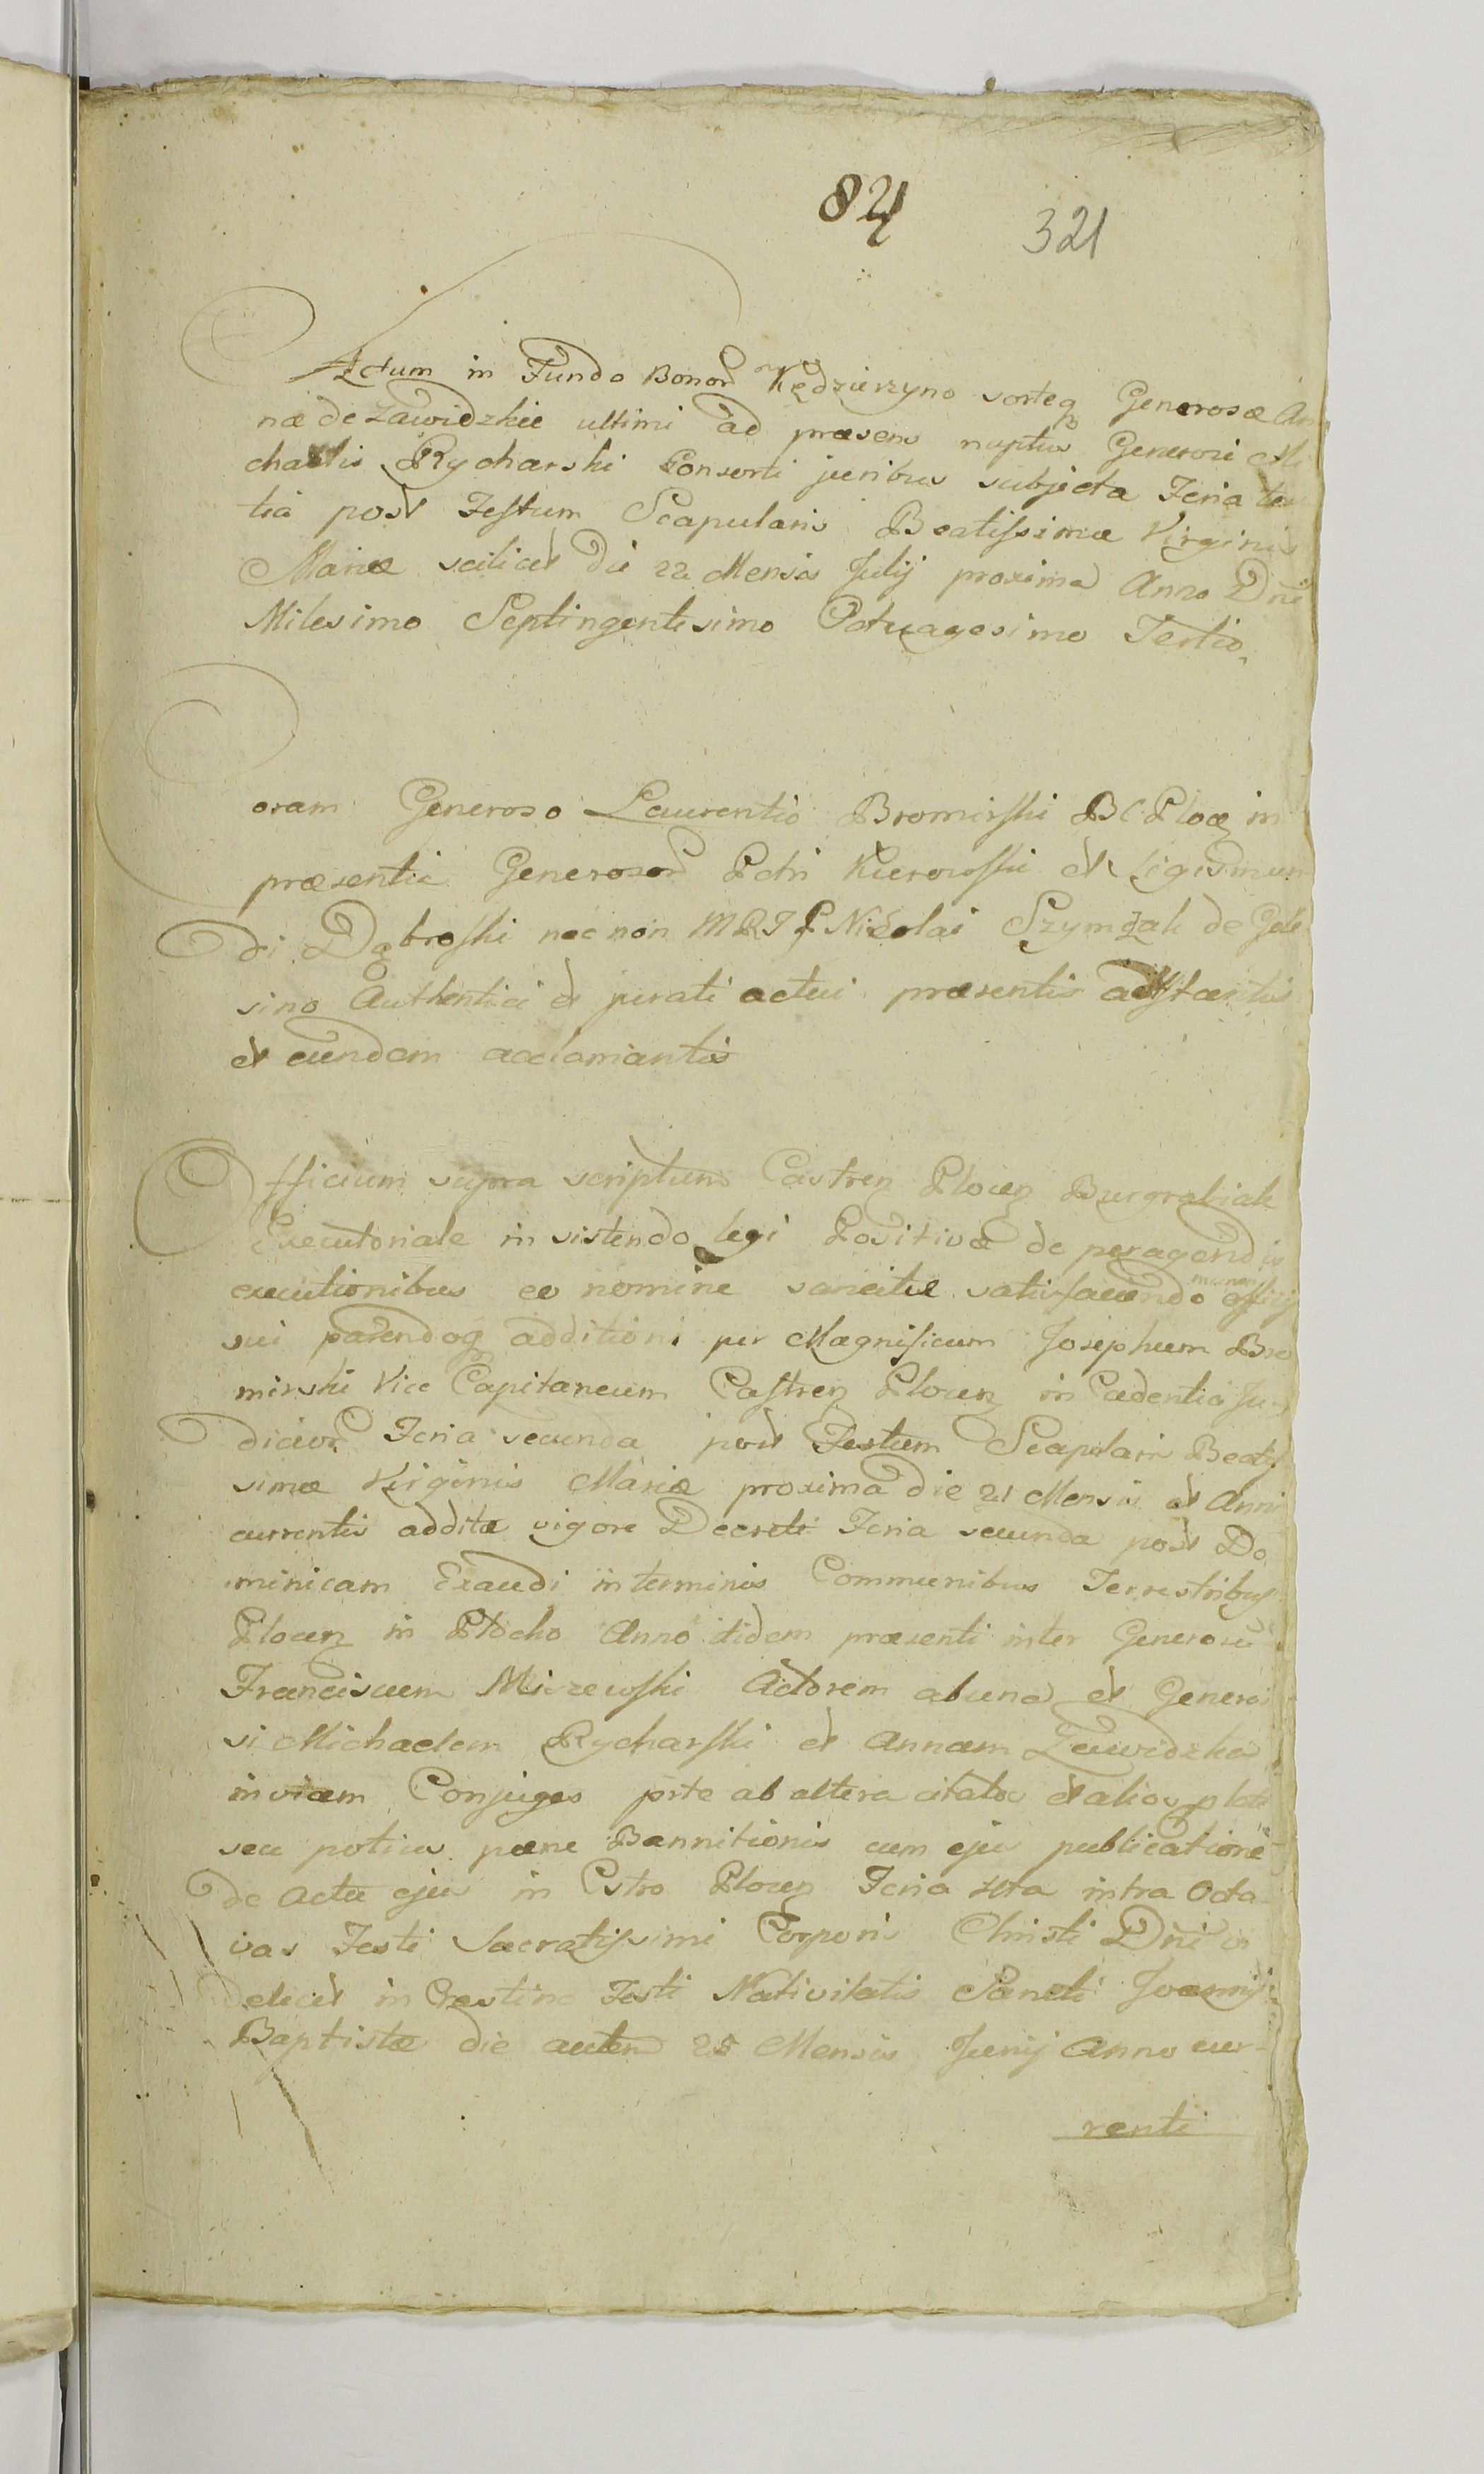 84
321
Actum in Fundo Bonor Kędzierzyno sorteq Generosæ An
næ de Zawidzkie ultimi ad præsens nuptus Generosi Mi
chaelis Rycharski Consorti juribus subjecta Feria ter
tia post Festum Scapularis Beatissimæ Virginis
Mariæ scilicet Die 22 Mensis Julij proxima Anno Dni
Milesimo Septingentesimo Octuagesimo Tertio.
Coram Generoso Laurentio Bromirski BC Ploc in
præsentia Generosor Petri Kierowski et Sigismun
di Dąbroski nec non MRJP Nicolai Szymczak de Gole
sino Authentici et jurati actui præsentis adstantis
et eundem acclamantis
Officium supra scriptum Castren Plocen Burgrabiale
Executoriale insistendo legi Positivæ de peragendis
executionibus eo nomine sancitæ satisfaciendo muneri officij
sui parendoq additioni per Magnificum Josephum Bro
mirski Vice Capitaneum Castren Plocen in Cadentia Ju
dicior Feria secunda post Festum Scapularis Beatis
simæ Virginis Mariæ proxima Die 21 Mensis et Anni
currentis additæ vigore Decreti Feria secunda post Do
minicam Exaudi in terminis Communibus Terrestribus
Plocen in Płocko Anno itidem præsenti inter Generosu
Franciscum Miszewski Actorem ab una et Genero
si Michaelem Rycharski et Annam Zawidzka
invicem Conjuges prte ab altera citatos et alios plati
seu potius pœne Bannitionis cum ejus publicatione
de Actu ejus in Cstro Plocen Feria 4ta intra Octa
vas Festi Sacratissimi Corporis Christi Dni vi
delicet in Crastino Festi Nativitatis Sancti Joannis
Baptistæ die autem 25 Mensis Junij Anno cur-
renti